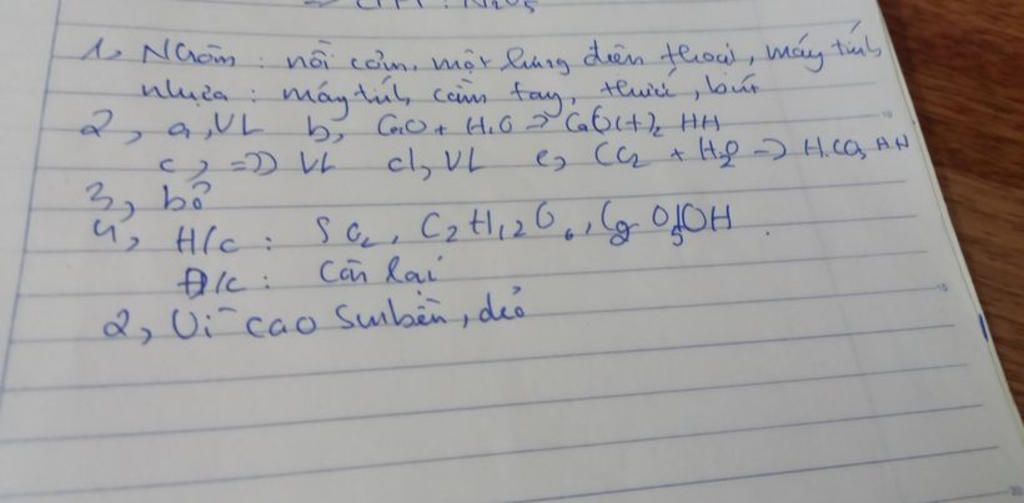 ⇒ CTPT : N2O5
1, Nhôm : nồi cơm, một lưng điện thoại, máy tính
nhựa : máy tính cầm tay, thước, bút
2, a, VL b, CaO + H2O => Ca(OH)2 HH
c, => VL d, VL e, CO2 + H2O => H2CO3 HH
3, bỏ
4, H/c : SO2, C2H12O6, C2O5OH
Đ/c : Còn lại
2, Vì cao su bền, dẻo